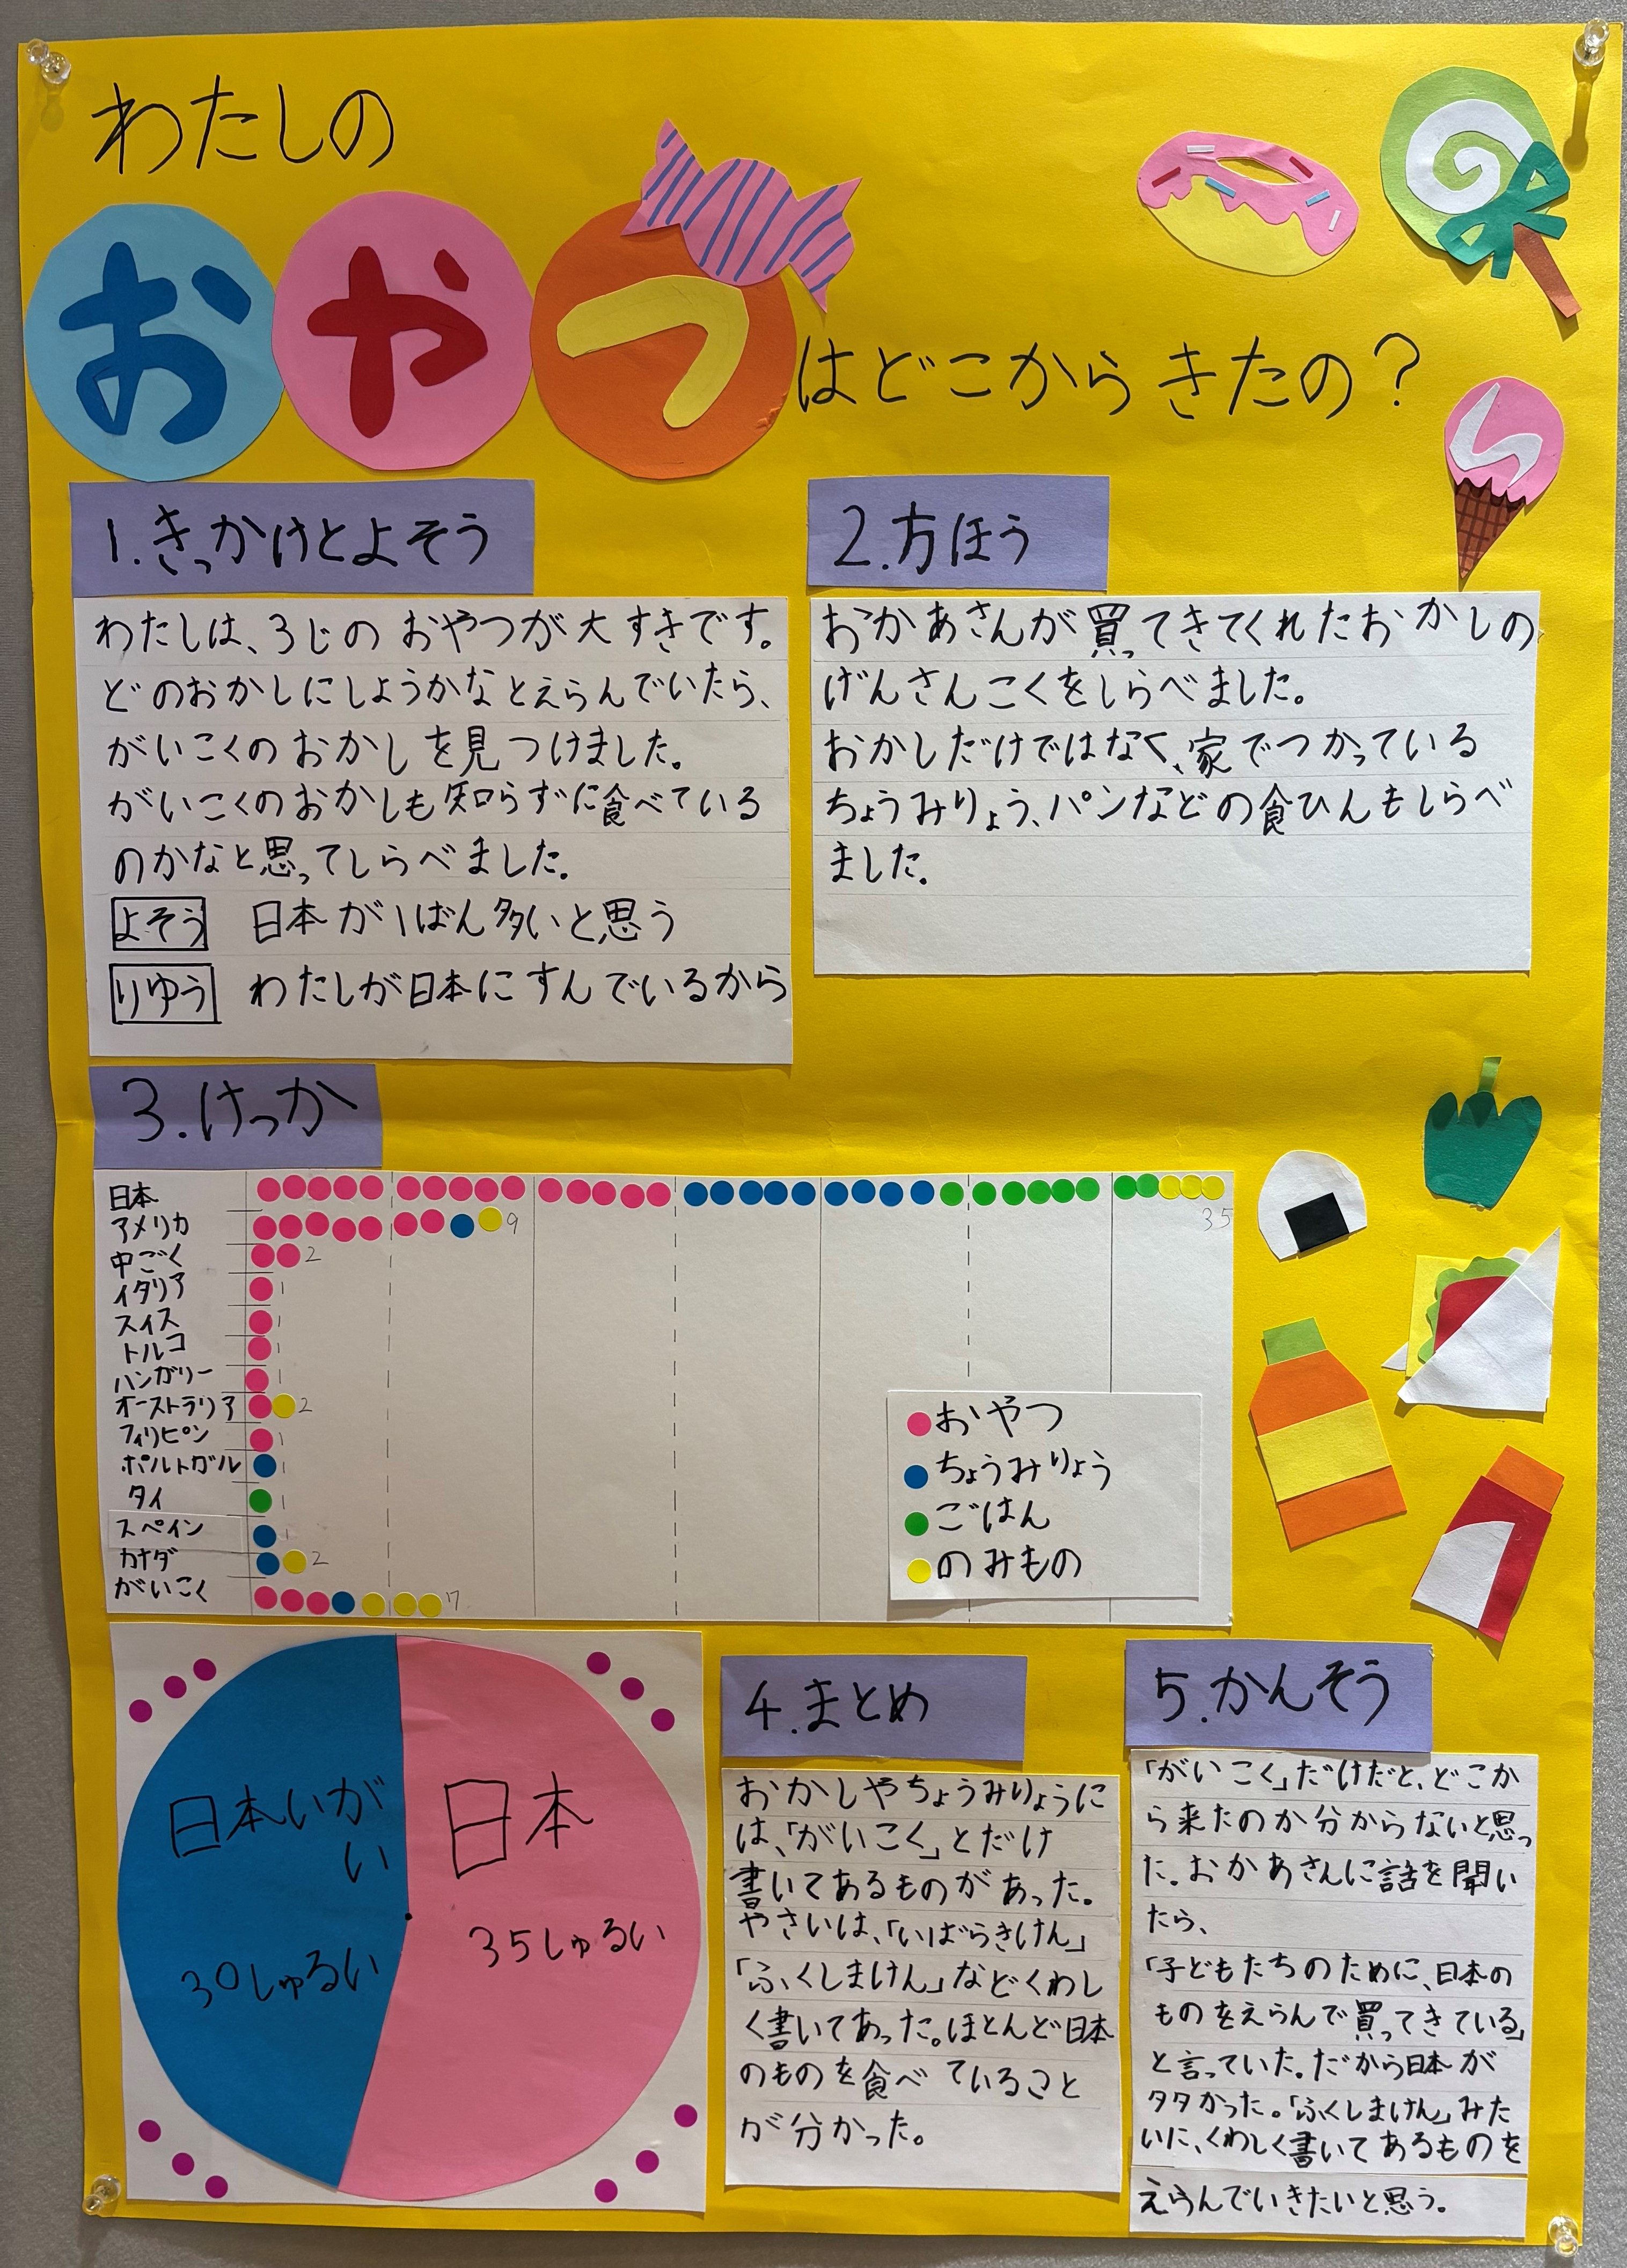 わたしの
おやつはどこからきたの？
1.きっかけとよそう
わたしは、3じのおやつが大すきです。
どのおかしにしようかなとえらんでいたら、
がいこくのおかしを見つけました。
がいこくのおかしも知らずに食べている
のかなと思ってしらべました。
よそう 日本が1ばん多いと思う
りゆう わたしが日本にすんでいるから
2.方ほう
おかあさんが買ってきてくれたおかしの
げんさんこくをしらべました。
おかしだけではなく、家でつかっている
ちょうみりょう、パンなどの食ひんもしらべ
ました。
3.けっか
日本 35
アメリカ 9
中ごく 2
イタリア 1
スイス 1
トルコ 1
ハンガリー 1
オーストラリア 2
フィリピン 1
ポルトガル 1
タイ 1
スペイン 1
カナダ 2
がいこく 7
おやつ
ちょうみりょう
ごはん
のみもの
日本いが
い
30しゅるい
日本
35しゅるい
4.まとめ
おかしやちょうみりょうに
は、「がいこく」とだけ
書いてあるものがあった。
やさいは、「いばらきけん」
「ふくしまけん」などくわし
く書いてあった。ほとんど日本
のものを食べていること
が分かった。
5.かんそう
「がいこく」だけだと、どこか
ら来たのか分からないと思っ
た。おかあさんに話を聞い
たら、
「子どもたちのために、日本の
ものをえらんで買ってきている」
と言っていた。だから日本が
多かった。「ふくしまけん」みた
いに、くわしく書いてあるものを
えらんでいきたいと思う。